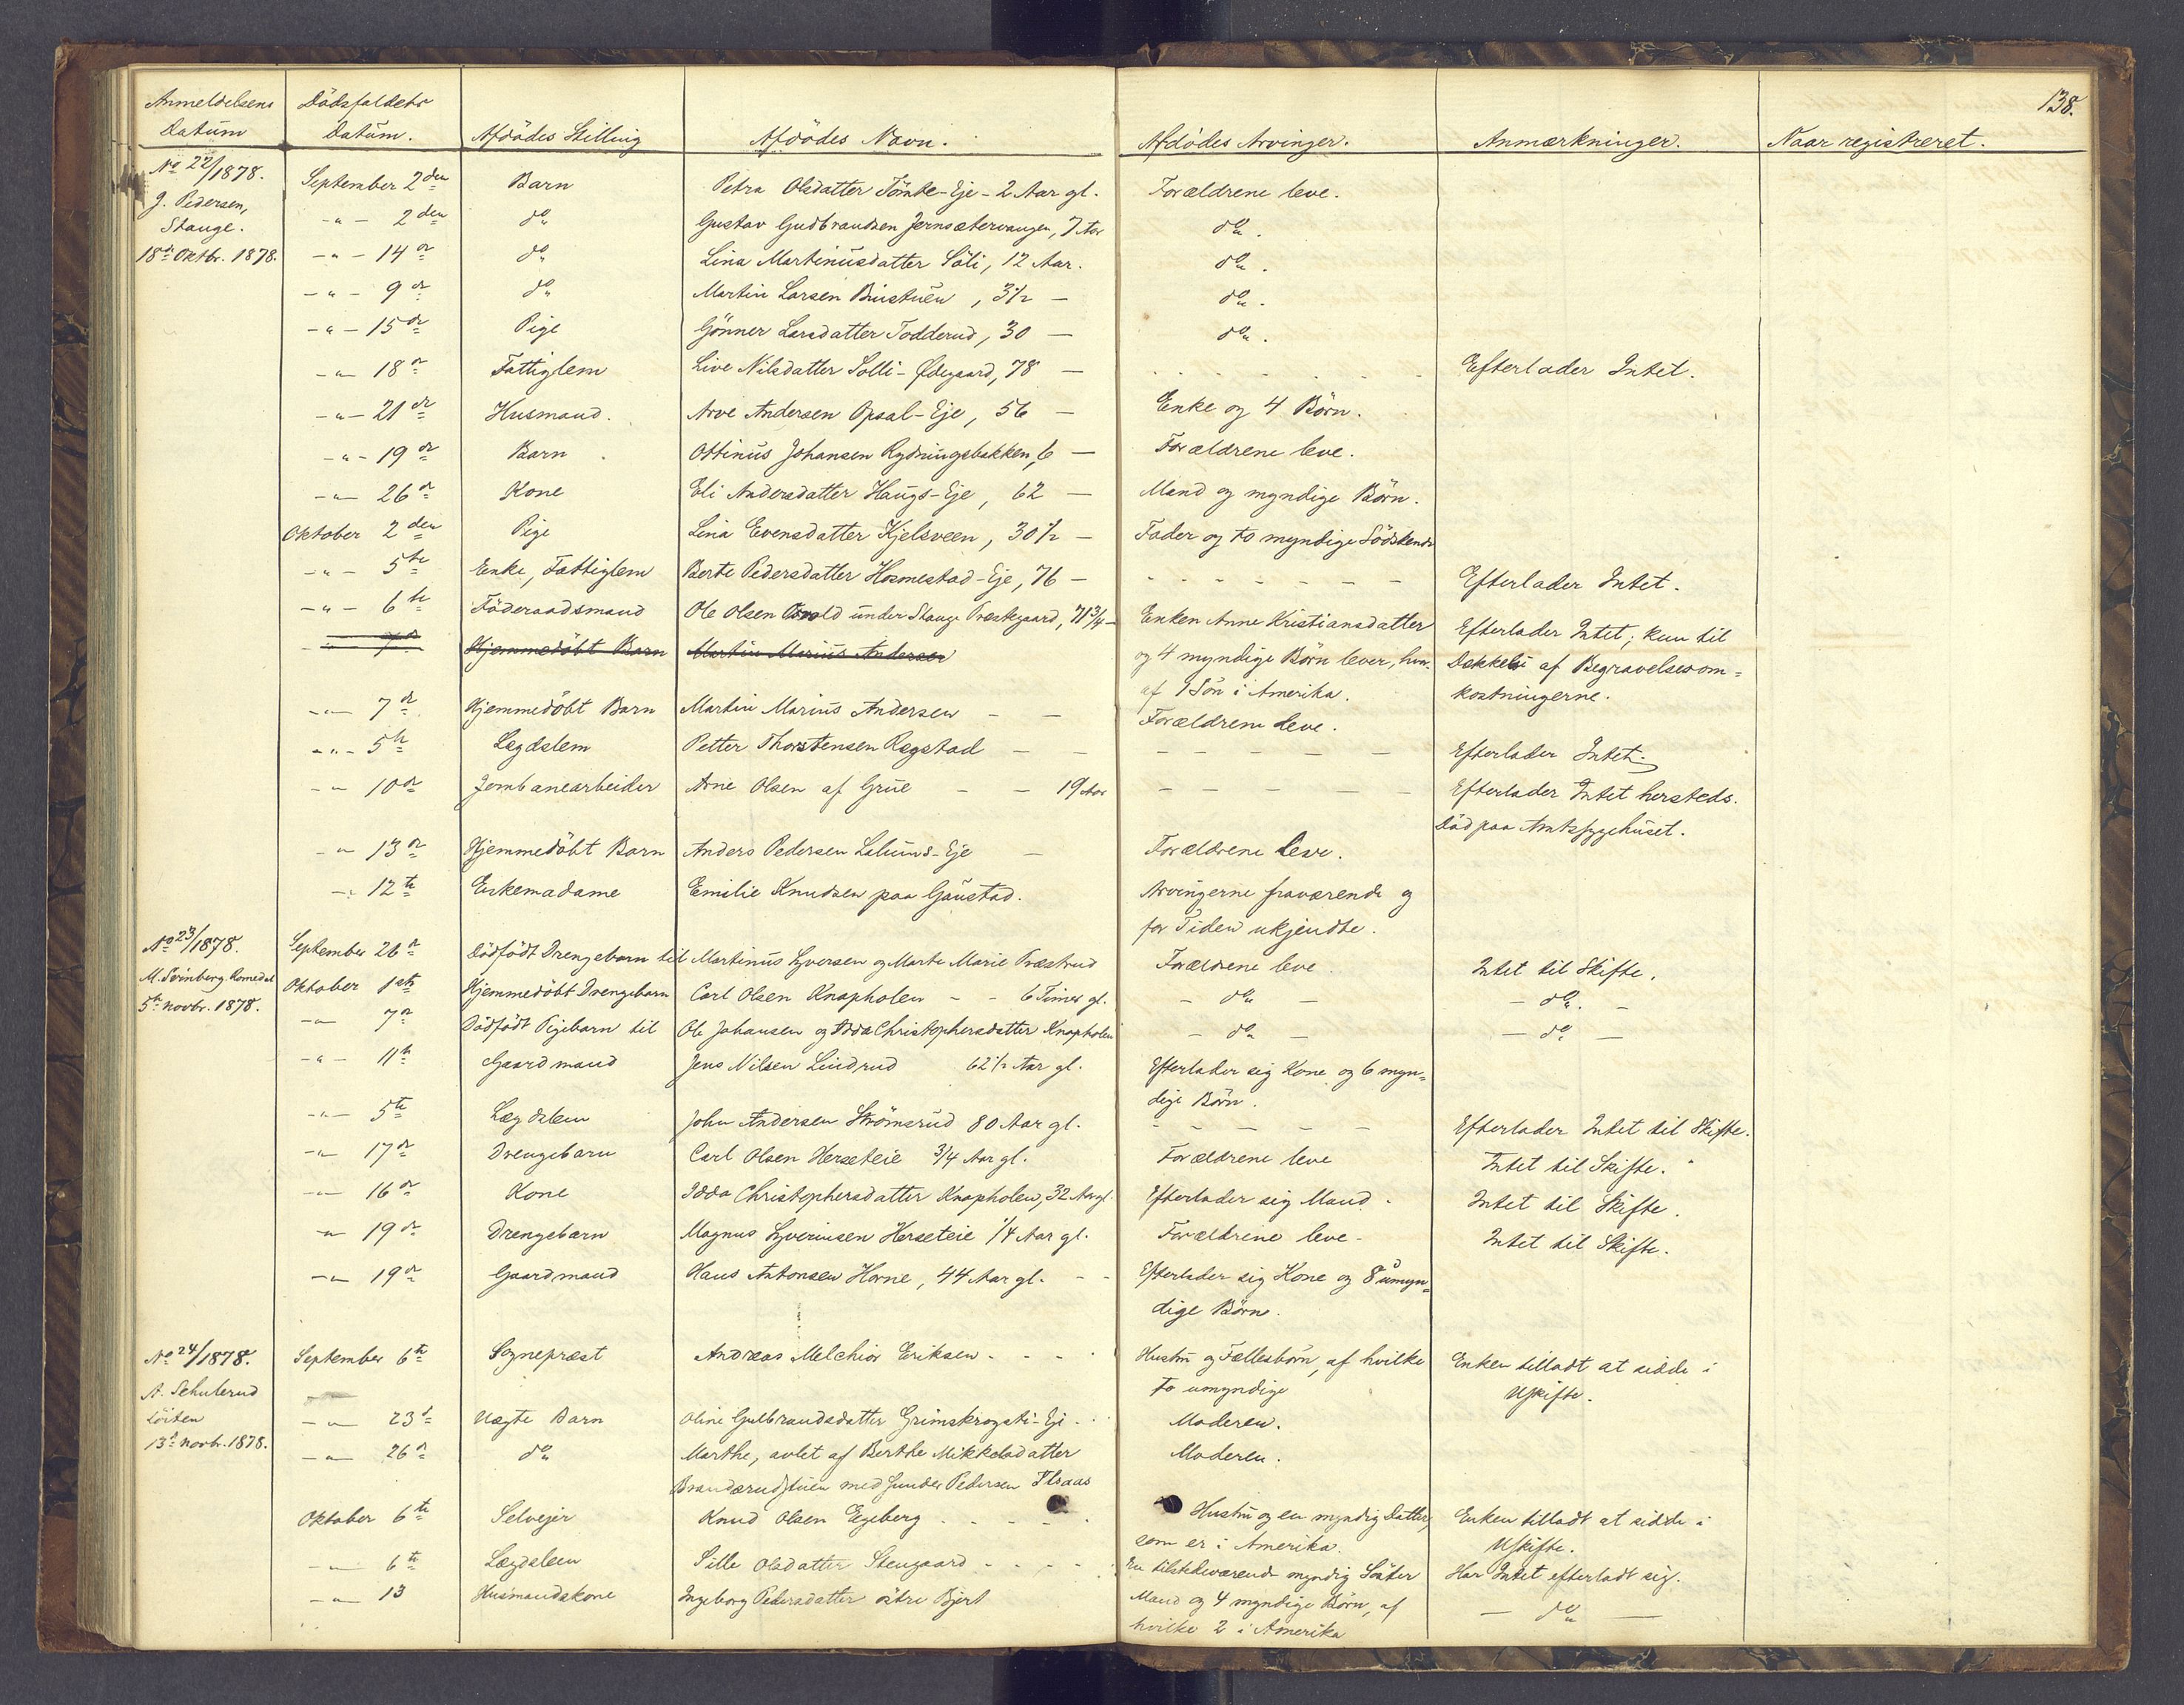 138.
Anmeldelsens Datum Dödsfaldets Datum. Afdödes Stilling Afdödes Navn. Afdödes Arvinger. Anmærkninger. Naar registreret.
No 22/1878. September 2den Barn Petra Olsdatter Tömte-Eje - 2 Aar gl. Forældrene leve.
J. Pedersen, -"- 2den do Gustav Gudbrandsen Jernsætervangen, 7 Aar do.
Stange. 18de Oktbr. 1878. -"- 14de do Lina Martinusdatter Söli, 12 Aar. do.
-"- 9de do Martin Larsen Bustuen, 3 1/2 — do.
-"- 15de Pige Gönner Larsdatter Todderud, 30 — do.
-"- 18de Fattiglem Live Nilsdatter Solli-Ødegaard, 78 — - - - - - Efterlader Intet.
-"- 21de Husmand. Arve Andersen Opsal-Eje, 56 — Enke og 4 Börn.
-"- 19de Barn Ottinus Johansen Rydningsbakken, 6 — Forældrene leve.
-"- 26de Kone Eli Andersdatter Haugs-Eje, 62 — Mand og myndige Börn.
Oktober 2den Pige Lina Evensdatter Kjelsveen, 30 1/2 — Fader og to myndige Södskende
-"- 5te Enke, Fattiglem Berte Pedersdatter Hosmestad-Eje, 76 — - - - - - Efterlader Intet.
-"- 6te Föderaadsmand Ole Olsen under Stange Præstegaard, 71 3/4 — Enken Anne Kristiansdatter Efterlader Intet; kun til
Hjemmedöbt Barn Martin Marius Andersen og 4 myndige Börn lever, hvor- Dækkelse af Begravelsesom=
af 1 Sön i Amerika. kostningerne.
-"- 7de Hjemmedöbt Barn Martin Marius Andersen - - Forældrene leve.
-"- 5te Lægdslem Petter Thorstensen Rogstad - - - - - - Efterlader Intet.
-"- 10de Jernbanearbeider Arne Olsen af Grue - - 19 Aar - - - - - Efterlader Intet hersteds.
Död paa Amtssygehuset.
-"- 13de Hjemmedöbt Barn Anders Pedersen Lalums-Eje - Forældrene leve.
-"- 12te Enkemadame Emilie Knudsen paa Gaustad. Arvingerne fraværende og
for Tiden ukjendte.
No 23/1878. September 26de Dödfödt Drengebarn til Martinus Syversen og Marte Marie Præstrud Forældrene leve. Intet til Skifte.
M. Svinberg. Romedal Oktober 1ste Hjemmedöbt Drengebarn Carl Olsen Knapholen - - 6 Timer gl. - do - - do. -
5te novbr. 1878. -"- 7de Dödfödt Pigebarn til Ole Johansen og Idda Christophersdatter Knapholen - do - - do -
-"- 11te Gaardmand Jens Nilsen Lindrud 62 1/2 Aar gl. Efterlader sig Kone og 6 myn=
dige Börn.
-"- 5te Lægdslem John Andersen Strömsrud 80 Aar gl. - - - - - Efterlader Intet til Skifte.
-"- 17de Drengebarn Carl Olsen Herseteie 3/4 Aar gl. Forældrene leve Intet til Skifte.
-"- 16de Kone Idda Christophersdatter Knapholen, 32 Aar gl. Efterlader sig Mand. Intet til Skifte.
-"- 19de Drengebarn Magnus Syverinsen Herseteie 1/4 Aar gl. Forældrene leve. Intet til Skifte.
-"- 19de Gaardmand Hans Antonsen Horne, 44 Aar gl. - - Efterlader sig Kone og 8 umyn=
dige Börn.
No 24/1878. September 6te Sognepræst Andreas Melchior Eriksen - - - - Hustru og Fællesbörn, af hvilke Enken tilladt at sidde i
A. Schulerud to umyndige Uskifte.
Löiten -"- 23de Uægte Barn Oline Gulbrandsdatter Grimskrogsti-Eje - - Moderen.
13de novbr. 1878. -"- 26de do Marthe, avlet af Berthe Mikkelsdatter Moderen.
Brandsrudstuen med Gunder Pedersen Flaaas
Oktober 6te Selvejer Knud Olsen Egeberg - - - - - Hustru og en myndig Datter, Enken tilladt at sidde i
som er i Amerika. Uskifte.
-"- 6te Lægdslem Sille Olsdatter Stengaard - - - - En tilstedeværende myndig Söster Har Intet efterladt sig.
-"- 13 Husmandskone Ingeborg Pedersdatter östre Bjert Mand og 4 myndige Börn, af - do -
hvilke 2 i Amerika